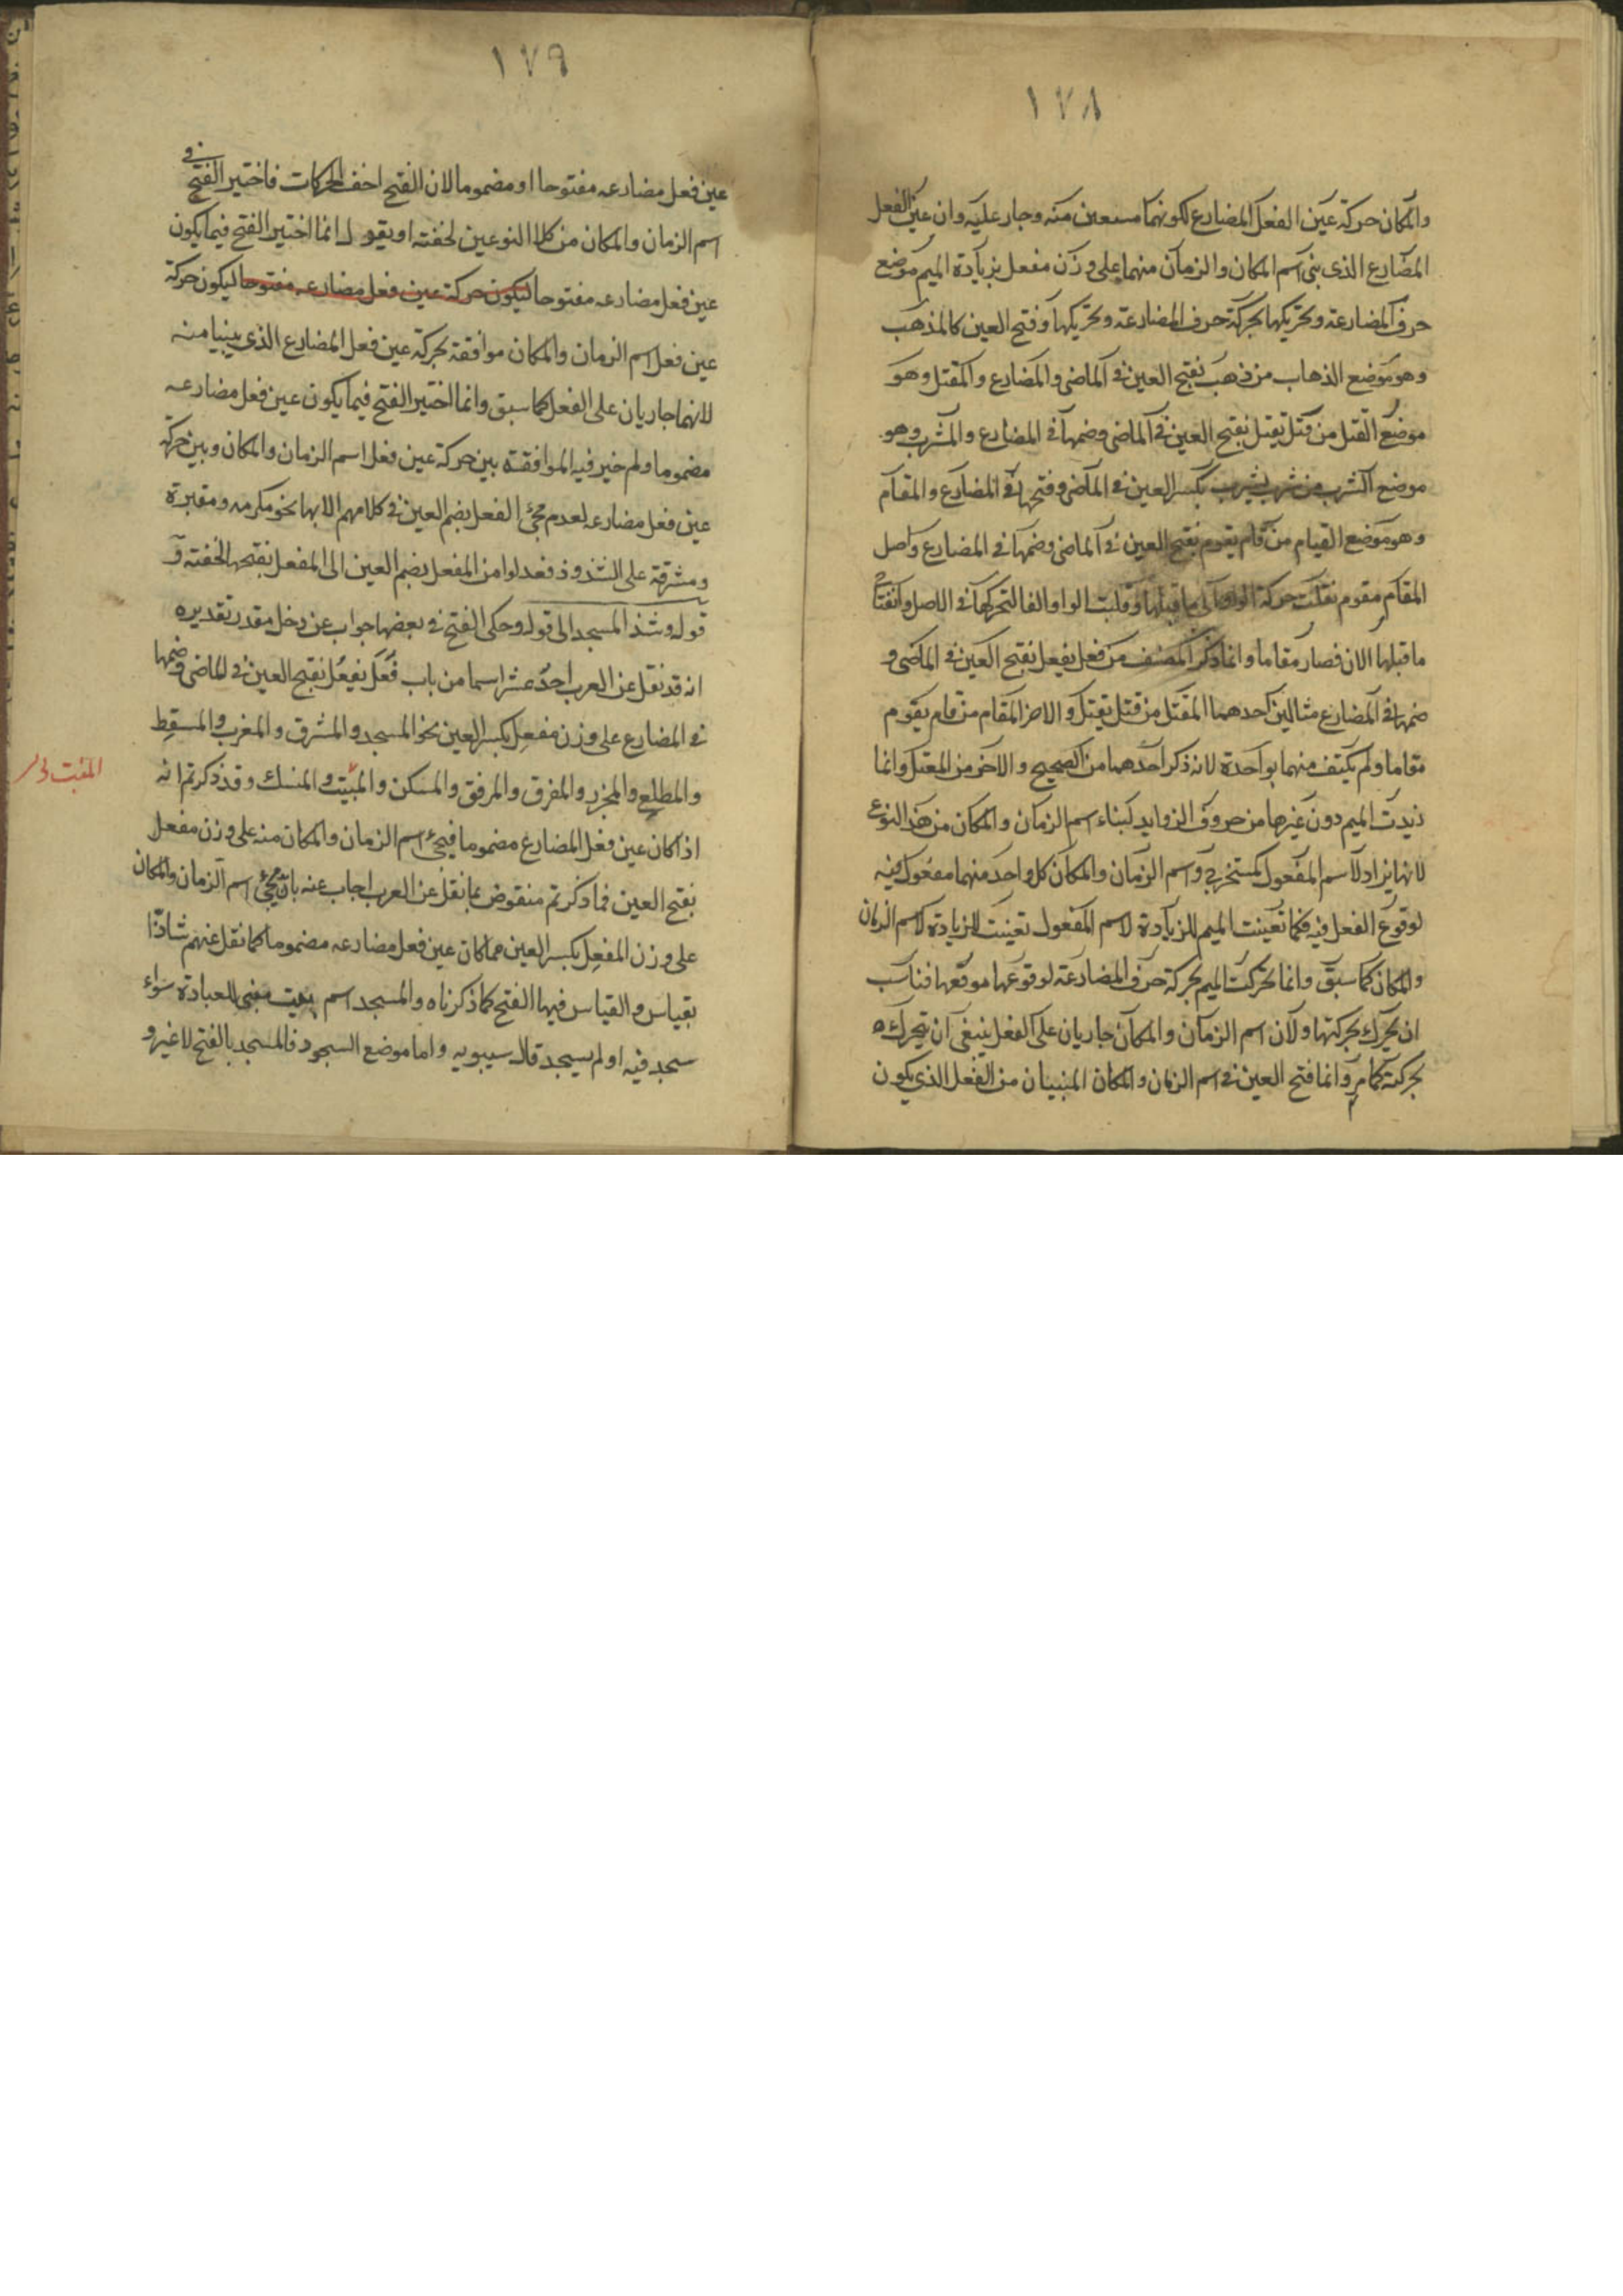 ١٧٨
والمكان حركة عين الفعل المضارع لكونهما منه وجار عليه وان عين الفعل
المضارع الذى بنى اسم المكان والزمان منهما على وزن مفعل بزيادة الميم موضع
حرف المضارعة وتحريكها بحركة حرف المضارعة وتحريكها وفتح العين كالمذهب
وهو موضع الذهاب من ذهب بفتح العين فى الماضى والمضارع والمقتل وهو
موضع القتل من قتل يقتل بفتح العين فى الماضى وضمها فى المضارع والمشرب وهو
موضع الشرب من شرب يشرب بكسر العين فى الماضى وفتحها فى المضارع والمقام
وهو موضع القيام من قام يقوم بفتح العين فى الماضى وضمها فى المضارع واصل
المقام مقوم نقلت حركة الواو الى ما قبلها وقلبت الواو الفا لتحركها فى الاصل وانفتاح
ما قبلها الان فصار مقاما وانما ذكر المصنف من فعل يفعل بفتح العين فى الماضى و
ضمها فى المضارع مثالين احدهما المقتل من قتل يقتل والاخر المقام من قام يقوم
مقاما ولم يكتف منهما بواحدة لانه ذكر احدهما من الصحيح والاخر من المعتل وانما
زيدت الميم دون غيرها من حروف الزوايد لبناء اسم الزمان والمكان من هذا النوع
لانها يزاد لاسم المفعول كمستخرج واسم الزمان والمكان كل واحد منهما مفعول فيه
لوقوع الفعل فيه فكما تعينت الميم للزيادة لاسم المفعول تعينت للزيادة لاسم الزمان
والمكان كما سبق وانما تحركت الميم بحركة حرف المضارعة لوقوعها موقعها فناسب
ان يحرك بحركتها ولان اسم الزمان والمكان جاريان على الفعل ينبغى ان يتحرك
بحركته كما مر وانما فتح العين فى اسم الزمان والمكان المبنيان من الفعل الذى يكون
١٧٩
عين فعل مضارعه مفتوحا او مضموما لان الفتح اخف الحركات فاختير الفتح فى
اسم الزمان والمكان من كلا النوعين لخفته او يقول انما اختير الفتح فيما يكون
عين فعل مضارعه مفتوحا ليكون حركة عين فعل مضارعه مفتوحا ليكون حركة
عين فعل اسم الزمان والمكان موافقة بحركة عين فعل المضارع الذى يبنيا منه
لانهما جاريان على الفعل كما سبق وانما اختير الفتح فيما يكون عين فعل مضارعه
مضموما ولم خير فيه الموافقة بين حركة عين فعل اسم الزمان والمكان وبين حركة
عين فعل مضارعه لعدم مجئ الفعل بضم العين فى كلامهم الا بها نحو مكرمه ومقبرة
ومشرقة على الشذوذ فعدلوا من المفعل بضم العين الى المفعل بفتحها لخفته و
قوله وشذ المسجد الى قوله وحكى الفتح فى بعضها جواب عن دخل مقدر تقديره
انه قد نقل عن العرب احد عشر اسما من باب فعل يفعل بفتح العين فى الماضى وضمها
فى المضارع على وزن مفعل بكسر العين نحو المسجد والمشرق والمغرب والمسقط
والمطلع والمجزر والمفرق والمرفق والمسكن والمبيت والمنسك وقد ذكرتم انه
المنبت
اذا كان عين فعل المضارع مضموما فيجئ اسم الزمان والمكان منه على وزن مفعل
بفتح العين فما ذكرتم منقوض بما نقل عن العرب اجاب عنه بان مجئ اسم الزمان والمكان
على وزن المفعل بكسر العين مما كان عين فعل مضارعه مضموما كما نقل عنهم شاذا
بقياس والقياس فيها الفتح كما ذكرناه والمسجد اسم بيت مبنى للعبادة سواء
سجد فيه او لم يسجد قال سيبويه واما موضع السجود فالمسجد بالفتح لا غير و